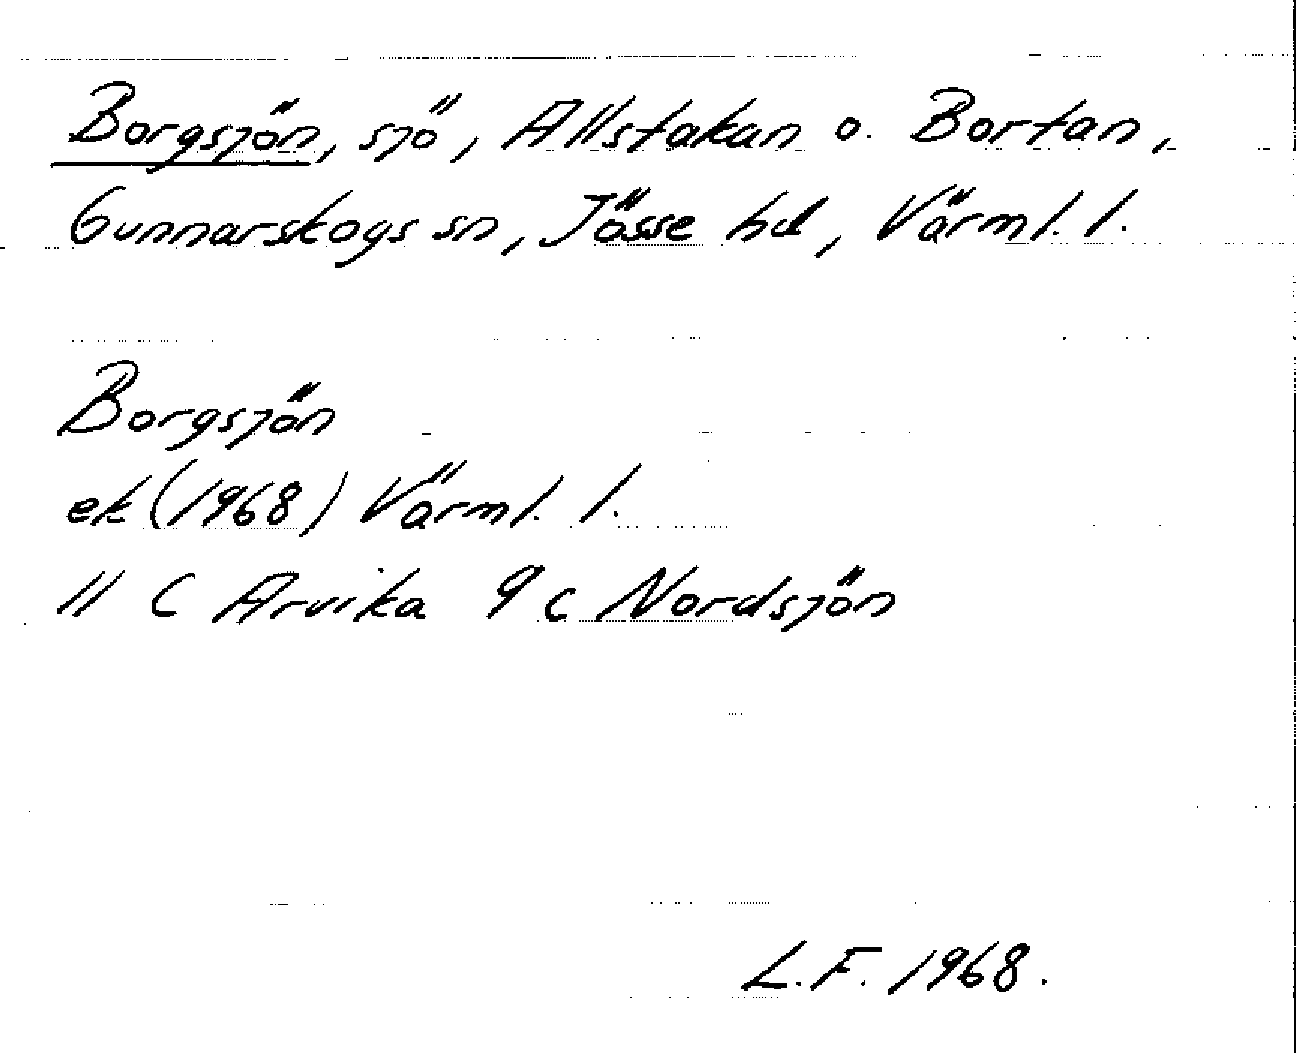 Borgsjön, sjö, Allstakan o. Bortan,
Gunnarskogs sn, Jösse hd, Värml. l.
Borgsjön
ek (1968) Värml. l.
11 C Arvika 9c Nordsjön
L.F. 1968.